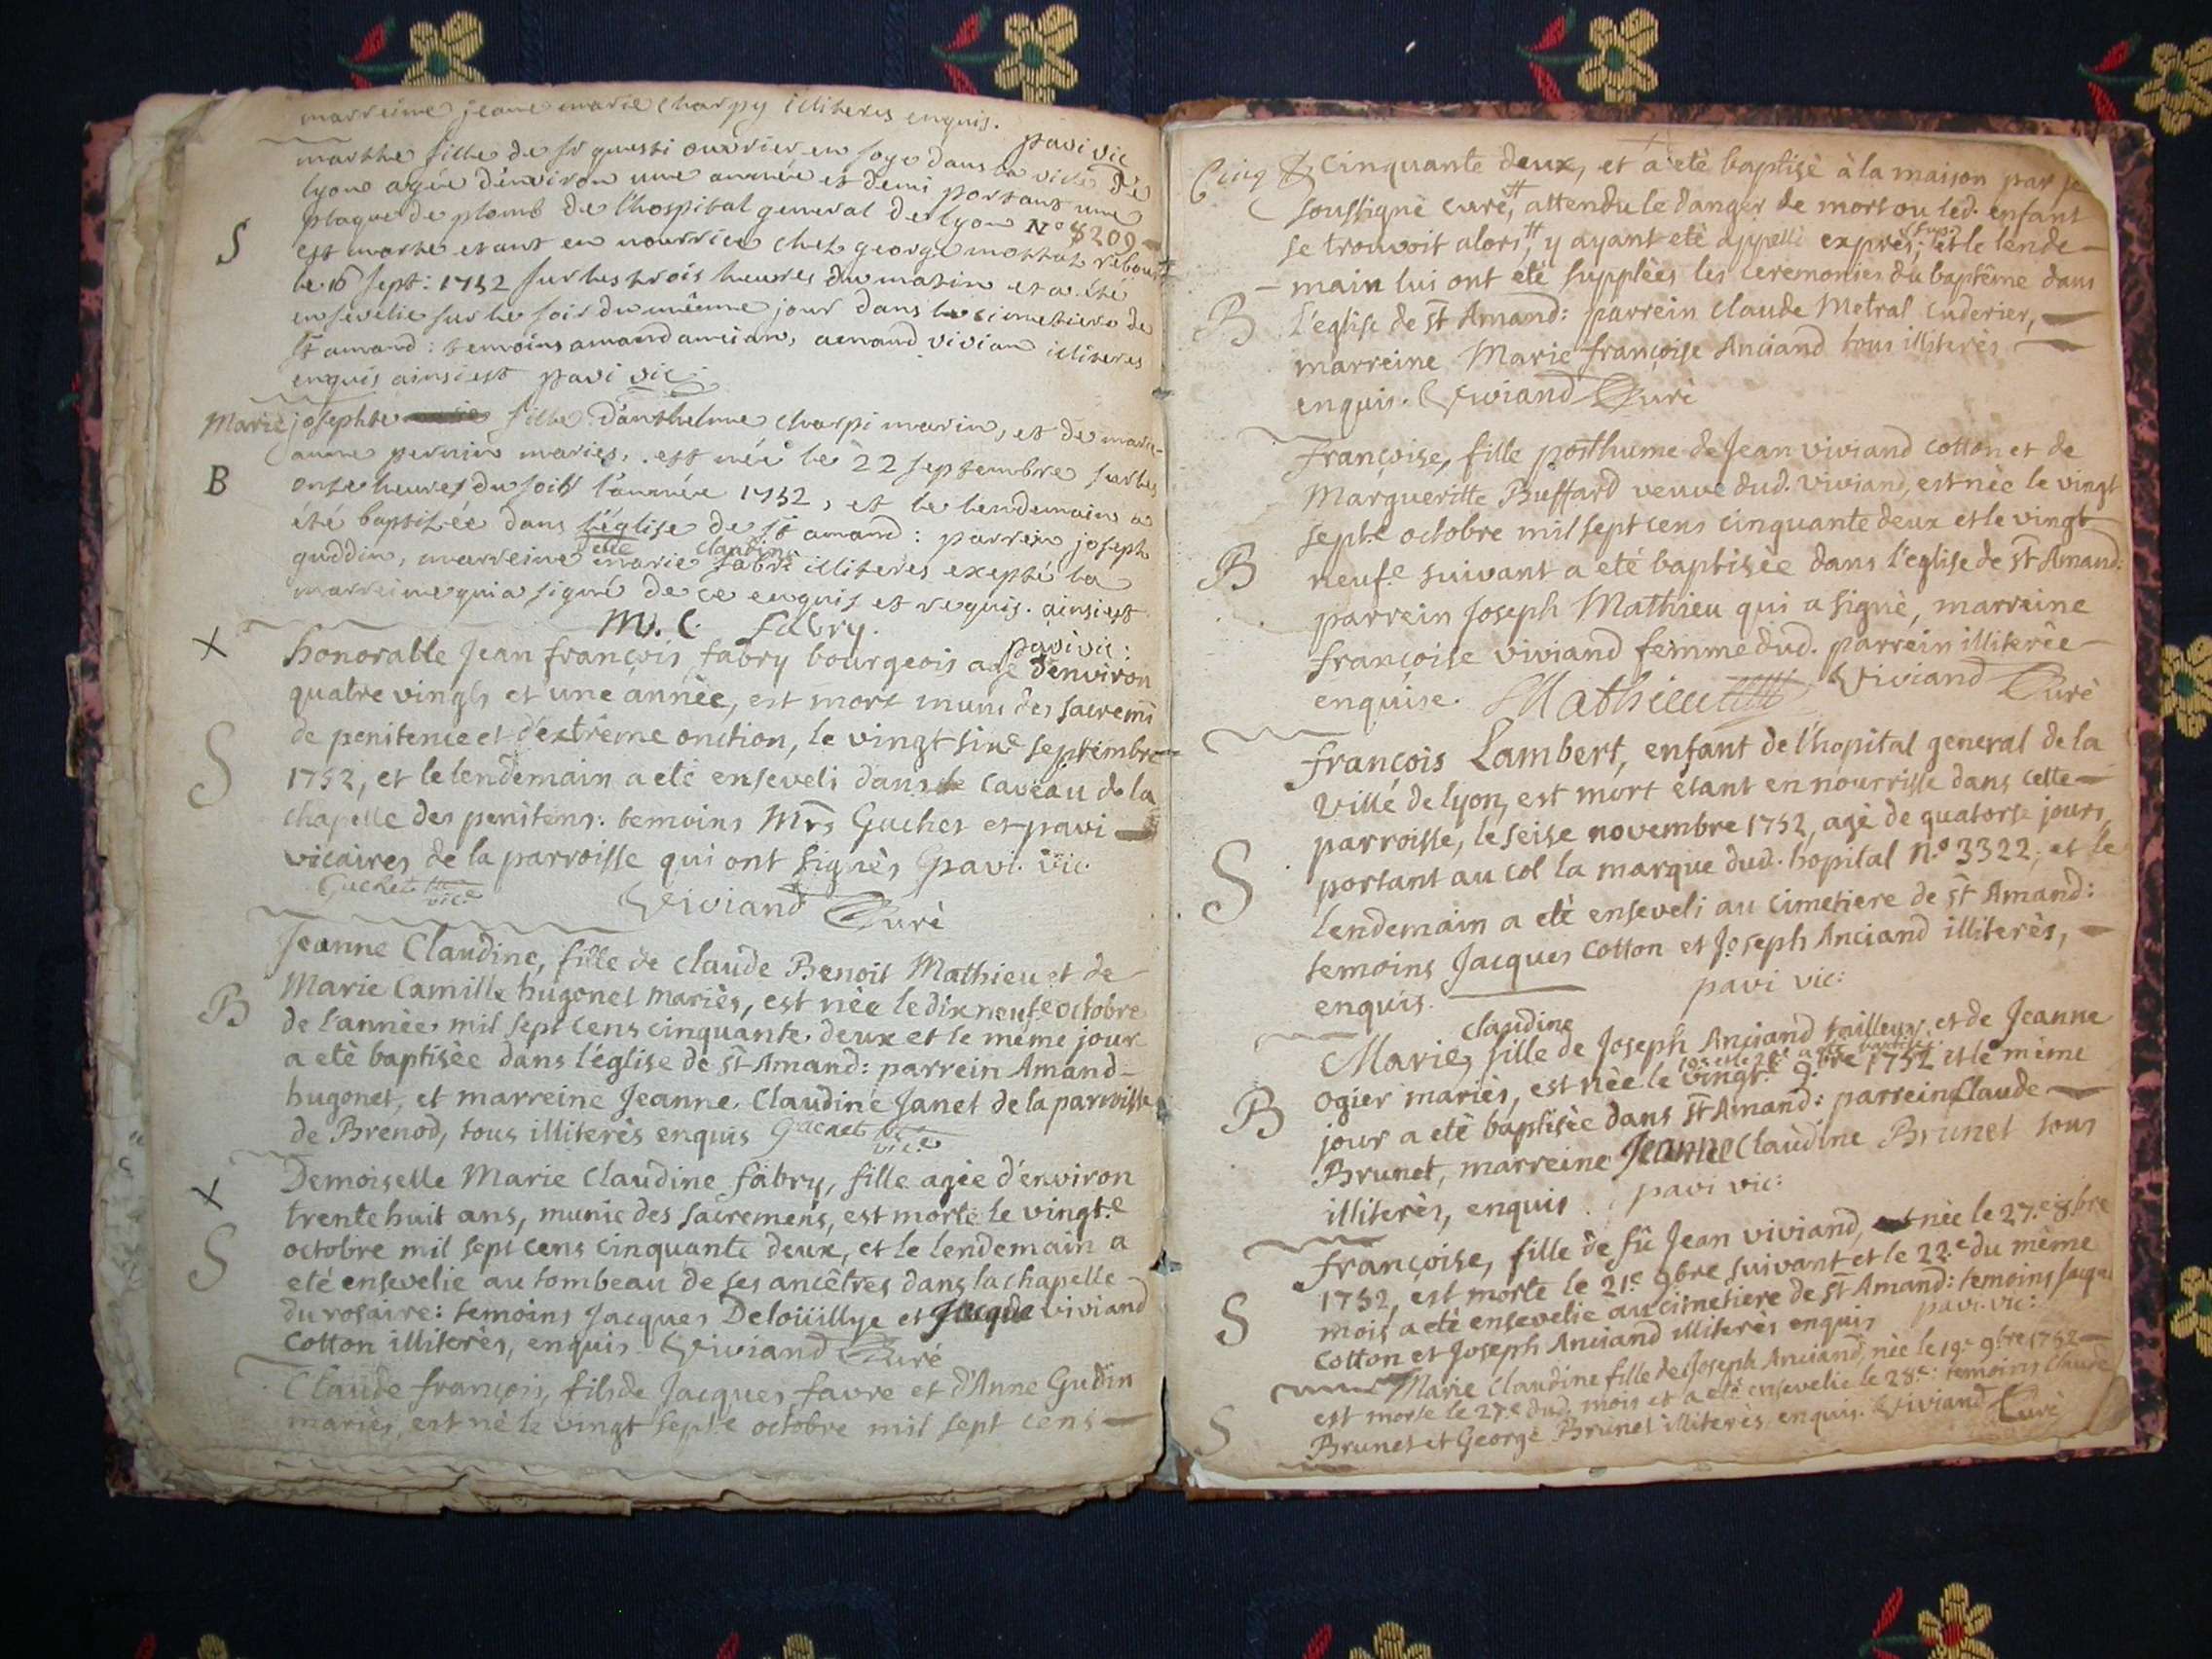 marreine jeane marie charpy illiteres enquis.
pavi vic
marthe fille de sr questi ouvrier en soye dans la ville de
lyon agée d'environ une année et demi portant une
plaque de plomb de l'hospital general de lyon N° 8209
S
est morte etant en nourrice chez george mottat
le 16 sept: 1752 sur les trois heures du matin et a été
ensevelie sur le soir du même jour dans le cimetiere de
st amand: temoins amand ancian, amand vivian illiteres
enquis ainsi est pavi vic.
Marie josephte fille d'anthelme charpi marin, et de marie
anne pernin mariés, est née le 22 septembre sur les
B
onse heures du soir l'année 1752, et le lendemain a
été baptizée dans l'église de st amand: parrein joseph
guddin, marreine elle marie claudine fabri illiteres excepté la
marreine qui a signé de ce enquis et requis. ainsi est
M. C. fabry.
pavi vic:
X
honorable Jean françois fabry bourgeois agé d'environ
quatre vingts et une annèe, est mort muni des sacremts
S
de penitence et d'extrême onction, le vingt sixe septembre
1752, et le lendemain a etè enseveli dans le caveau de la
chapelle des penitens: temoins Mrs Guchet et pavi
vicaires de la parroisse qui ont signès pavi. vic.
Guchet vice
Viviand Curè
Jeanne Claudine, fille de claude Benoit Mathieu et de
Marie Camille hugonet mariès, est nèe le dix neufe octobre
B
de l'annèe mil sept cens cinquante deux et le même jour
a etè baptisèe dans l'église de st Amand: parrein Amand
hugonet, et marreine Jeanne Claudine Janet de la parroisse
de Brenod, tous illiterès enquis Guchet vice
X
Demoiselle Marie Claudine fabry, fille agèe d'environ
trente huit ans, munie des sacremens, est morte le vingt.e
S
octobre mil sept cens cinquante deux, et le lendemain a
etè ensevelie au tombeau de ses ancêtres dans la chapelle
du rosaire: temoins Jacques Deloüillye et Jacque viviand
Cotton illiterès, enquis Viviand Curè
Claude françois, fils de Jacques favre et d'Anne Gudin
mariès, est nè le vingt septe octobre mil sept cens
Cinq & Cinquante deux, et a etè baptisè à la maison par je
soussignè curè, attendu le danger de mort ou led. enfant
se trouvoit alors, y ayant etè appellè exprès; et le lende
main lui ont etè supplèes les ceremonies du baptême dans
B
l'eglise de st Amand: parrein claude Metral cuderier,
marreine Marie françoise Anciand tous illiterès
enquis. Viviand Curè
Françoise, fille posthume de Jean viviand cotton et de
Margueritte Buffard veuve dud. viviand, est nèe le vingt
septe octobre mil sept cens cinquante deux et le vingt
B
neuf.e suivant a etè baptisèe dans l'eglise de st Amand:
parrein Joseph Mathieu qui a signè, marreine
françoise viviand femme dud. parrein illiterèe
enquise. Mathieu Viviand Curè
François Lambert, enfant de l'hopital general de la
ville de lyon, est mort etant en nourrisse dans cette
parroisse, le seise novembre 1752, agè de quatorse jours,
S
portant au col la marque dud. hopital N.° 3322; et le
lendemain a etè enseveli au cimetiere de st Amand:
temoins Jacques Cotton et Joseph Anciand illiterès,
enquis. pavi vic:
claudine
Marie, fille de Joseph Anciand tailleur, et de Jeanne
B
Ogier mariès, est nèe le vingt.e 9.bre 1752 et le même
jour a etè baptisèe dans st Amand: parrein Claude
Brunet, marreine Jeanne Claudine Brunet tous
illiterès, enquis. pavi vic:
Françoise, fille de fû Jean viviand, nèe le 27.e 8bre
1752, est morte le 21.e 9bre suivant et le 22.e du même
S
mois a etè ensevelie au cimetiere de st Amand: temoins Jacque
Cotton et Joseph Anciand illiterès enquis pavi. vic:
Marie Claudine fille de Joseph Anciand, nèe le 19.e 9.bre 1752
est morte le 27.e dud. mois et a etè ensevelie le 28.e: temoins Claude
S
Brunet et George Brunet illiterès enquis. Viviand Curè